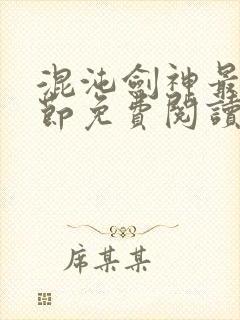 混沌劍神最
節免費閱讀
席某某